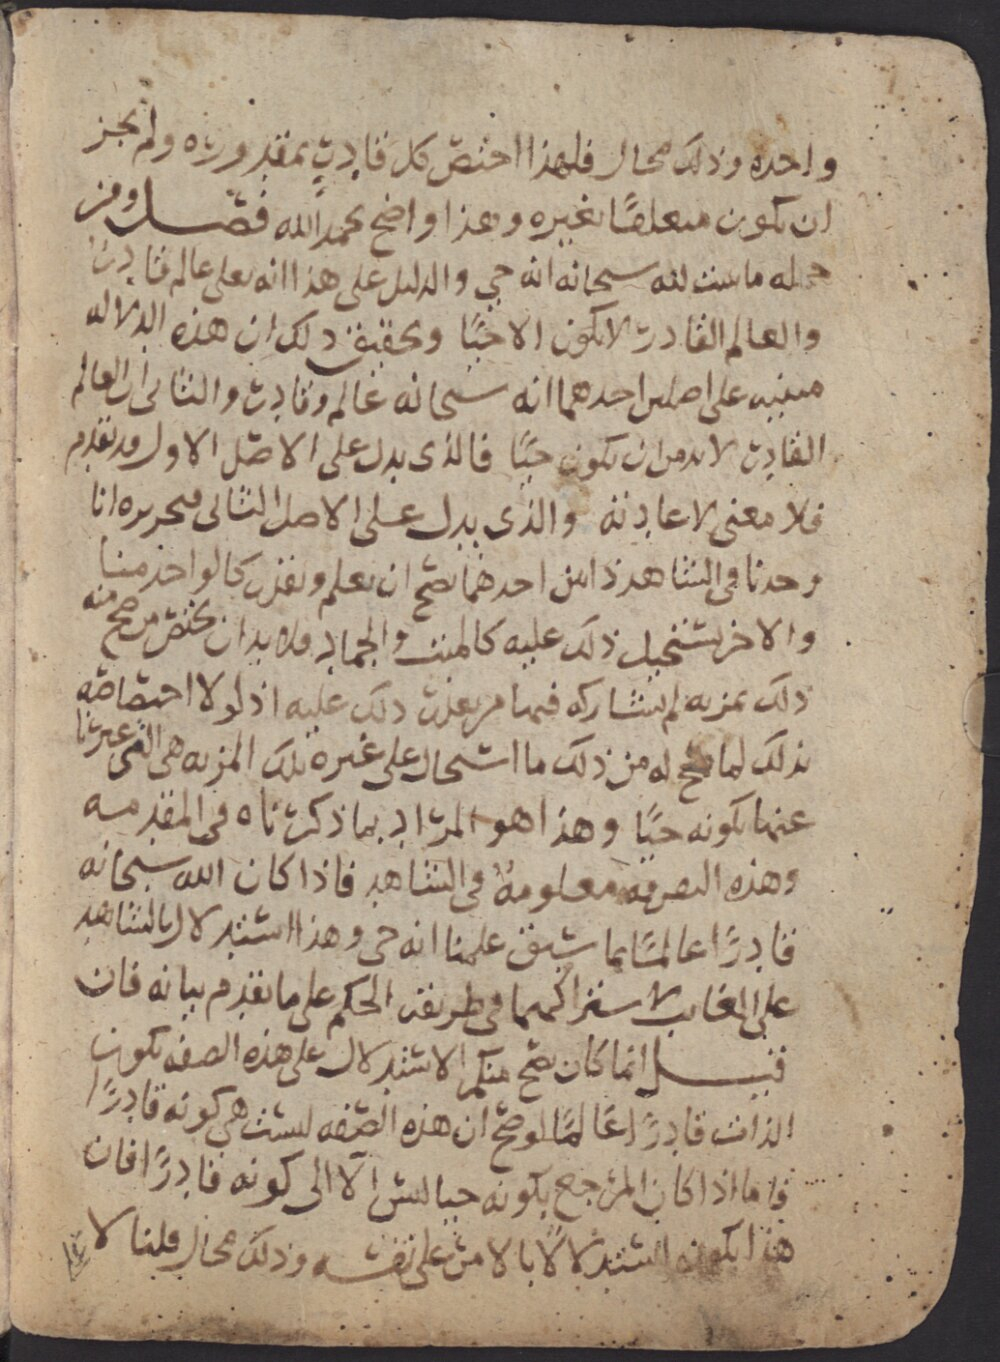 واحده وذلك محال فلهذا اختص كل قادر بمقدوره ولم يجز
ان يكون متعلقًا بغيره وهذا واضح بحمد الله فصل ومن
جمله ما يثبت لله سبحانه انه حي والدليل على هذا انه تعلى عالم قادر
والعالم القادر لا يكون الا حيًا وتحقيق ذلك ان هذه الدلاله
مبنيه على اصلين احدهما انه سبحانه عالم وقادر والثاني ان العالم
القادر لا بد من ان يكون حيًا فالذي يدل على الاصل الاول قد تقدم
فلا معنى لاعادته والذي يدل على الاصل الثاني فتحريره انا
وجدنا في الشاهد ذاتين احدهما يصح ان يعلم ويقدر كالواحد منا
والاخر يستحيل ذلك عليه كالميت والجماد فلا بد ان يختص من صح منه
ذلك بمزيه لم يشاركه فيها من يتعذر ذلك عليه اذ لولا اختصاصه
بذلك لما صح له من ذلك ما استحال على غيره تلك المزيه هي التي عبرنا
عنها بكونه حيًا وهذا هو المراد بما ذكرناه في المقدمه
وهذه التفرقه معلومة في الشاهد فاذا كان الله سبحانه
قادرًا عالمًا بما سبق علمنا انه حي وهذا استدلال بالشاهد
على الغايب لاشتراكهما في طريقة الحكم على ما تقدم بيانه فان
قيل انما كان يصح منكم الاستدلال على هذه الصفه بكون
الذات قادرًا عالمًا لو صح ان هذه الصفه ليست هي كونه قادرًا
فاما اذا كان المرجع بكونه حيا ليس الا الى كونه قادرًا فان
هذا يكون استدلالًا بالامر على نفسه وذلك محال قلنا لا